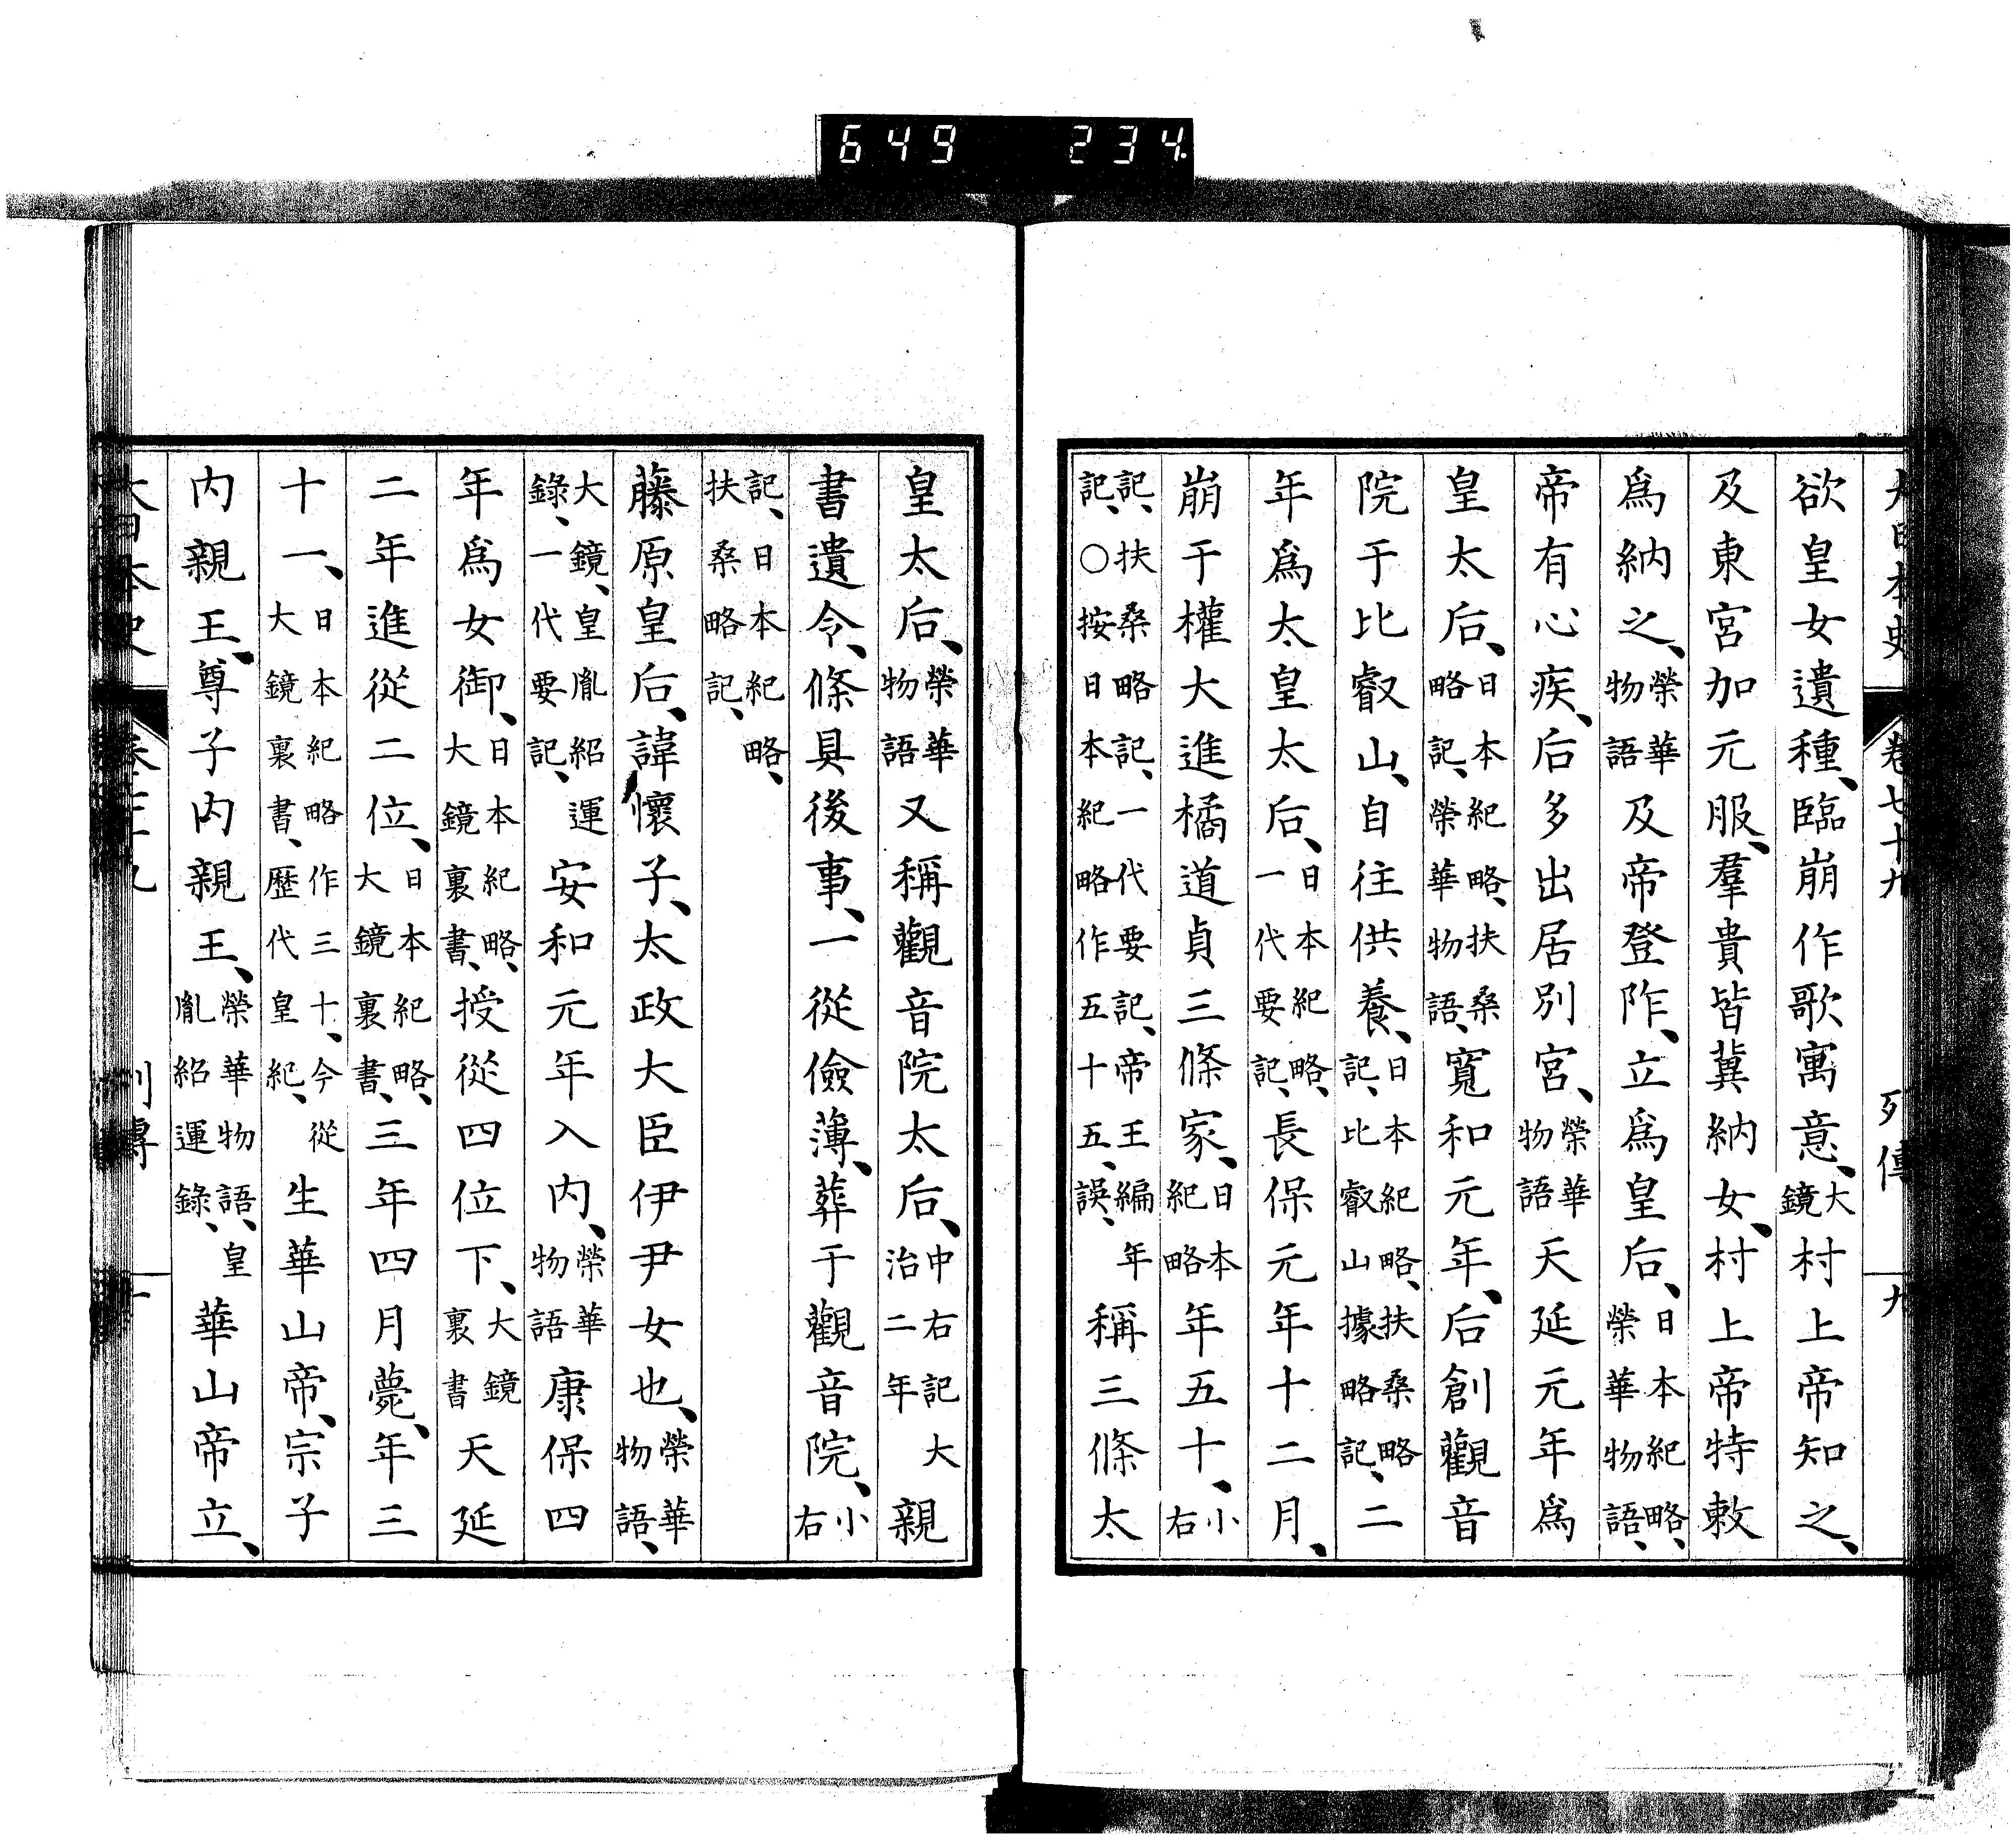 649 234
大日本史 卷七十九 列傳 九
欲皇女遺種、臨崩作歌寓意、大鏡村上帝知之、
及東宮加元服、羣貴皆冀納女、村上帝特敕
爲納之、榮華物語及帝登阼、立爲皇后、日本紀略、榮華物語、
帝有心疾、后多出居別宮、榮華物語天延元年爲
皇太后、日本紀略、扶桑略記、榮華物語、寬和元年、后創觀音
院于比叡山、自往供養、日本紀略、扶桑略記、比叡山據略記、二
年爲太皇太后、日本紀略、一代要記、長保元年十二月、
崩于權大進橘道貞三條家、日本紀略年五十、小右
記、扶桑略記、一代要記、帝王編年記、○按日本紀略作五十五、誤、稱三條太
皇太后、榮華物語又稱觀音院太后、中右記大治二年親
書遺令、條具後事、一從儉薄、葬于觀音院、小右
記、日本紀略、扶桑略記、
藤原皇后、諱懷子、太政大臣伊尹女也、榮華物語、
大鏡、皇胤紹運錄、一代要記、安和元年入內、榮華物語康保四
年爲女御、日本紀略、大鏡裏書、授從四位下、大鏡裏書天延
二年進從二位、日本紀略、大鏡裏書、三年四月薨、年三
十一、日本紀略作三十、今從大鏡裏書、歷代皇紀、生華山帝、宗子
內親王、尊子內親王、榮華物語、皇胤紹運錄、華山帝立、
大日本史 列傳